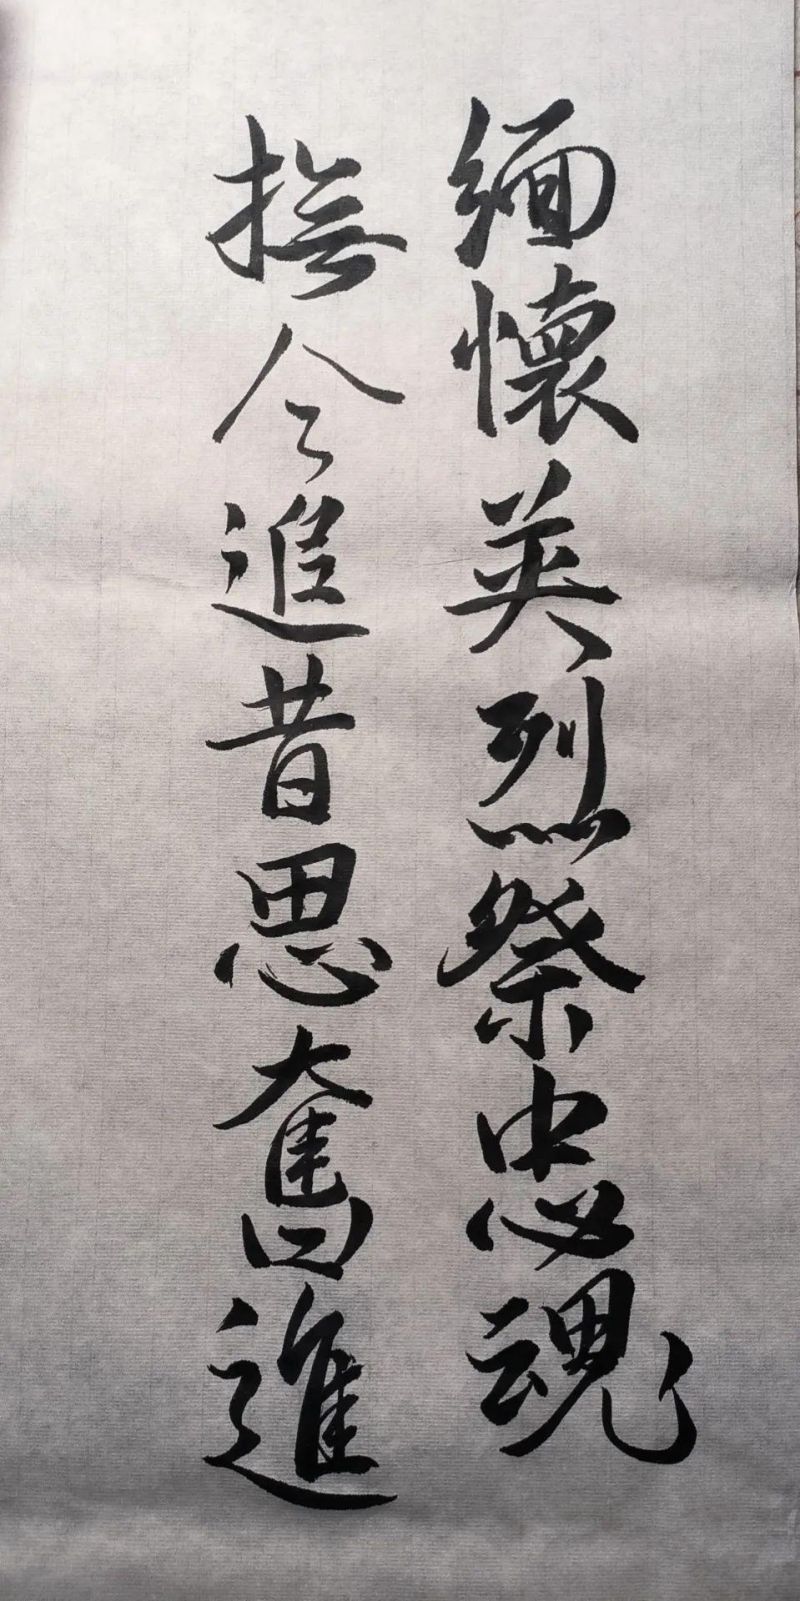 緬懷英烈祭忠魂
撫今追昔思奮進